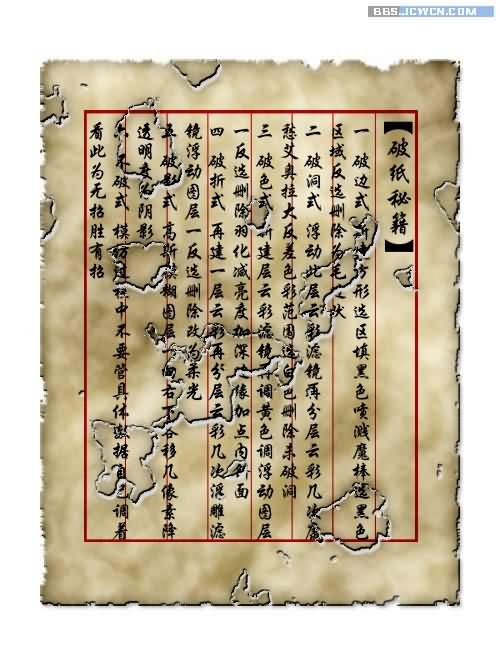 BBS.JCWCN.COM
【破纸秘籍】
一 破边式 新建方形选区填黑色喷溅魔棒选黑色
区域反选删除为毛 状
二 破洞式 浮动此层云彩滤镜再分层云彩几次魔
愁艾奥拉大反差色彩范围选白色删除杀破洞
三 破色式 新建层云彩滤镜再调黄色调浮动图层
一反选删除羽化减亮度加深 像加点内斜面
四 破折式 再建一层云彩再分层云彩几次浮雕滤
镜浮动图层一反选删除改为柔光
五 破影式 高斯模糊图层一向右下各移几像素降
透明度为阴影
六 不破式 模仿过程中不要管具体数据自己调着
看此为无招胜有招